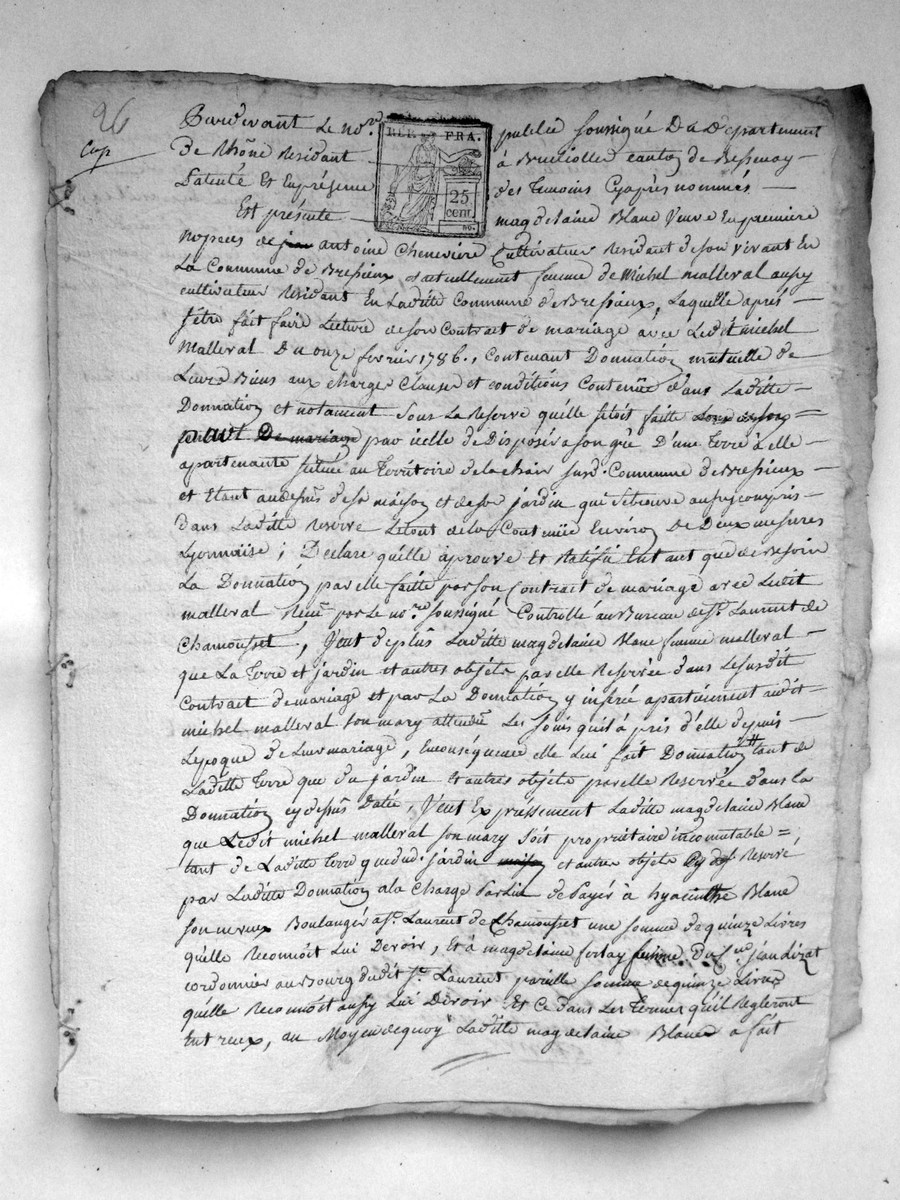 26
Cop
REP. FRA.
25
CENT.
Pardevant Le no.re public soussigné Du Département
De Rhône Résidant à Brullioles canton de Bessenay
Patenté Et En présence des Temoins Cyaprès nommés
Est présente magdelaine Blanc Veuve En première
Nopces de jean antoine Chenevière Cultivateur Résidant de son vivant En
La Commune de Bressieux & actuellement femme de Michel malleval aussy
cultivateur Résidant En Laditte Commune de Bressieux, Laquelle après
s'être fait faire Lecture de son Contract de mariage avec Ledit michel
Malleval Du onze fevrier 1786., Contenant Donnation mutuelle de
Leurs Biens aux charges Clauses et conditions Contenüe dans Laditte
Donnation et notament sous La Reserve qu'elle s'étoit faitte
De mariage par icelle de Disposer a son gré D'une Terre à elle
apartenante scituée au Territoire de susd. Commune de Bressieux
et Etant audessus de sa maison et de son jardin qui se trouve aussy compris
dans Laditte Reserve Letout de la Contenüe Environ De Deux mesures
Lyonnaise ; Declare qu'elle aprouve Et Ratifie En tant que de Besoin
La Donnation par elle faitte par son Contract de mariage avec Ledit
malleval Reçu par Le no.re soussigné Controllé au Bureau de S.t Laurent de
Chamousset, Veut de plus Laditte magdelaine Blanc femme malleval
que La Terre et jardin et autres objets par elle Reservée dans Le susdit
Contract de mariage et par La Donnation y inserée apartiennent audit
michel malleval son mary attendu Les soins qu'il à pris d'elle depuis
Lepoque de Leur mariage, En conséquence elle Lui fait Donnation tant de
Laditte Terre que du jardin Et autres objets par elle Reservée dans la
Donnation cy dessus Datée, Veut Expressément Laditte magdelaine Blanc
que Ledit michel malleval son mary soit propriétaire incommutable
tant de Laditte Terre que dud. jardin et autres objets cy dess. Reservé
par Laditte Donnation a la Charge Par Lui de Payer à hyacinthe Blanc
son neveux Boulanger a S.t Laurent de Chamousset une somme de quinze Livres
qu'elle Reconnoit Lui Devoir, Et à magdelaine femme Du C.en jean dizat
cordonnier au Bourg dudit S.t Laurent pareille somme de quinze Livres
qu'elle Reconnoit aussy Lui Devoir Et Ce dans Les Termes qu'il Regleront
Entreux, au Moyen de quoy Laditte magdelaine Blanc a fait